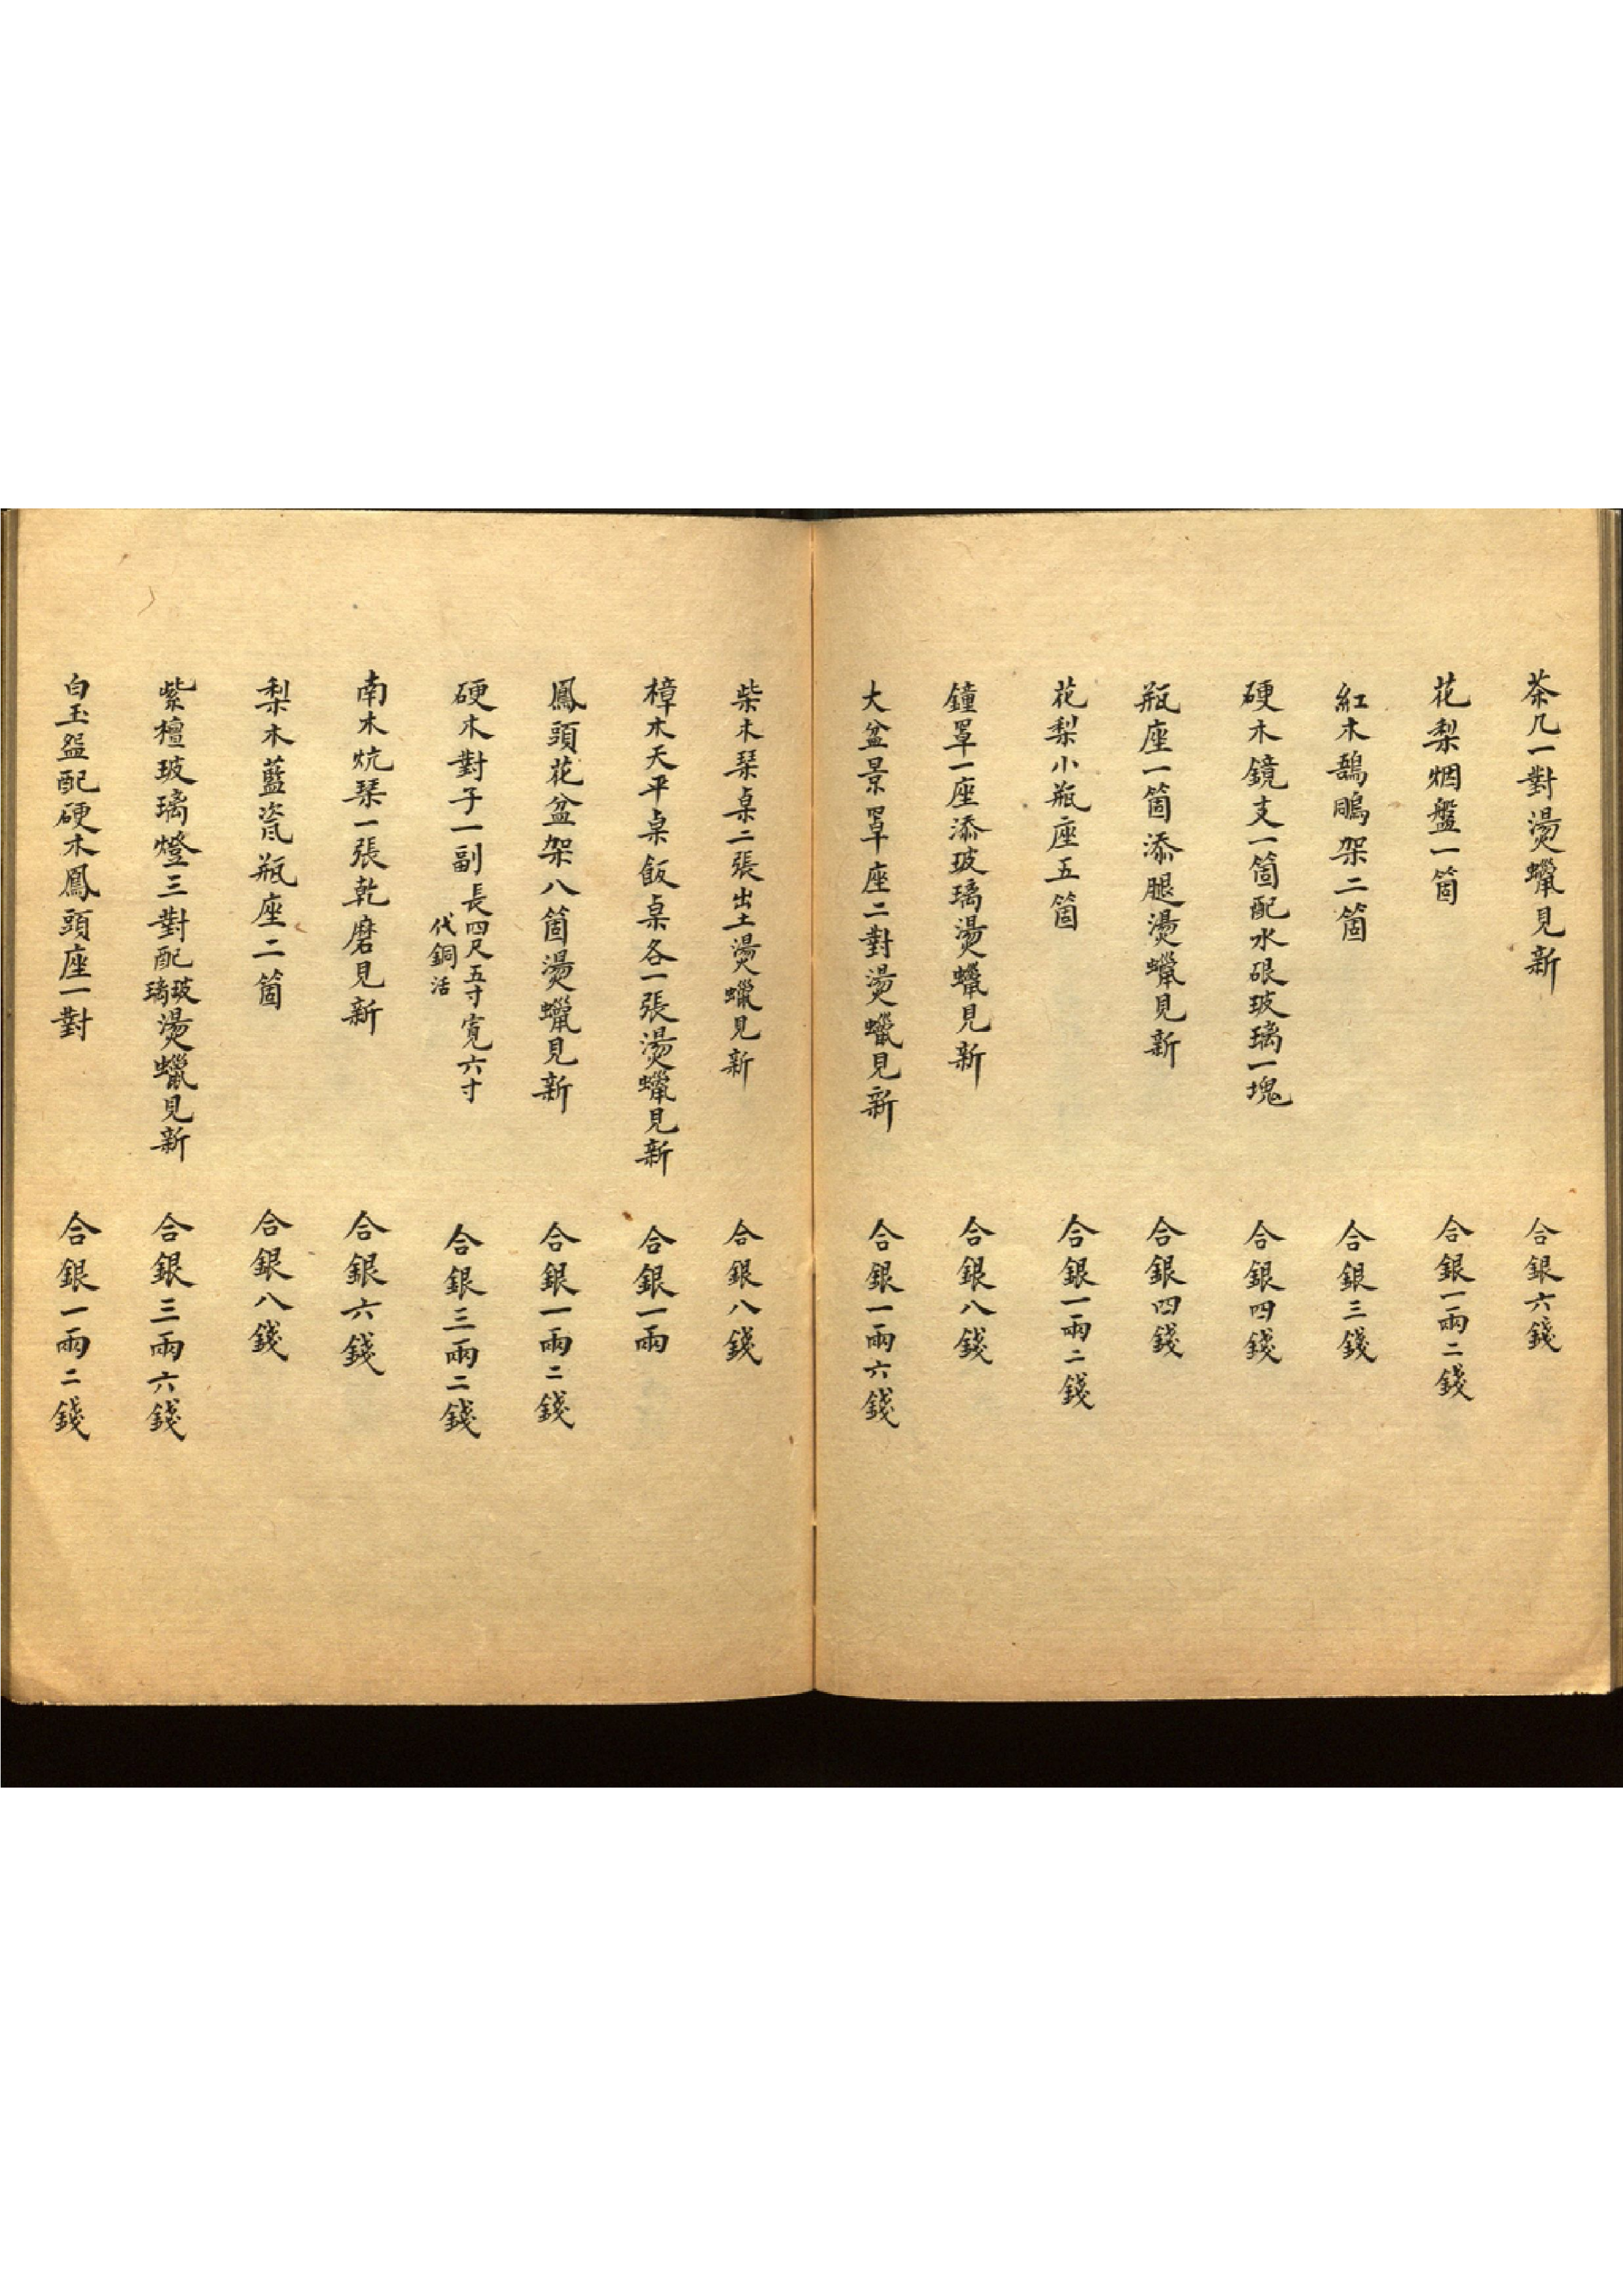 茶几一對燙蠟見新 合銀六錢
花梨烟盤一箇 合銀一兩二錢
紅木鵠鵰架二箇 合銀三錢
硬木鏡支一箇配水硍玻璃一塊 合銀四錢
瓶座一箇添腿燙蠟見新 合銀四錢
花梨小瓶座五箇 合銀一兩二錢
鐘罩一座添玻璃燙蠟見新 合銀八錢
大盆景罩座二對燙蠟見新 合銀一兩六錢
柴木琹桌二張出土燙蠟見新 合銀八錢
樟木天平桌飯桌各一張燙蠟見新 合銀一兩
鳳頭花盆架八箇燙蠟見新 合銀一兩二錢
硬木對子一副長四尺五寸寬六寸代銅活 合銀三兩二錢
南木炕琹一張乾磨見新 合銀六錢
梨木藍瓷瓶座二箇 合銀八錢
紫檀玻璃燈三對配玻璃燙蠟見新 合銀三兩六錢
白玉盌配硬木鳳頭座一對 合銀一兩二錢